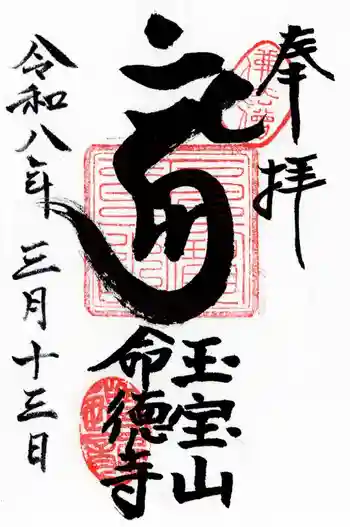 奉拝
佛法僧
玉宝山
命徳寺
令和八年 三月十三日